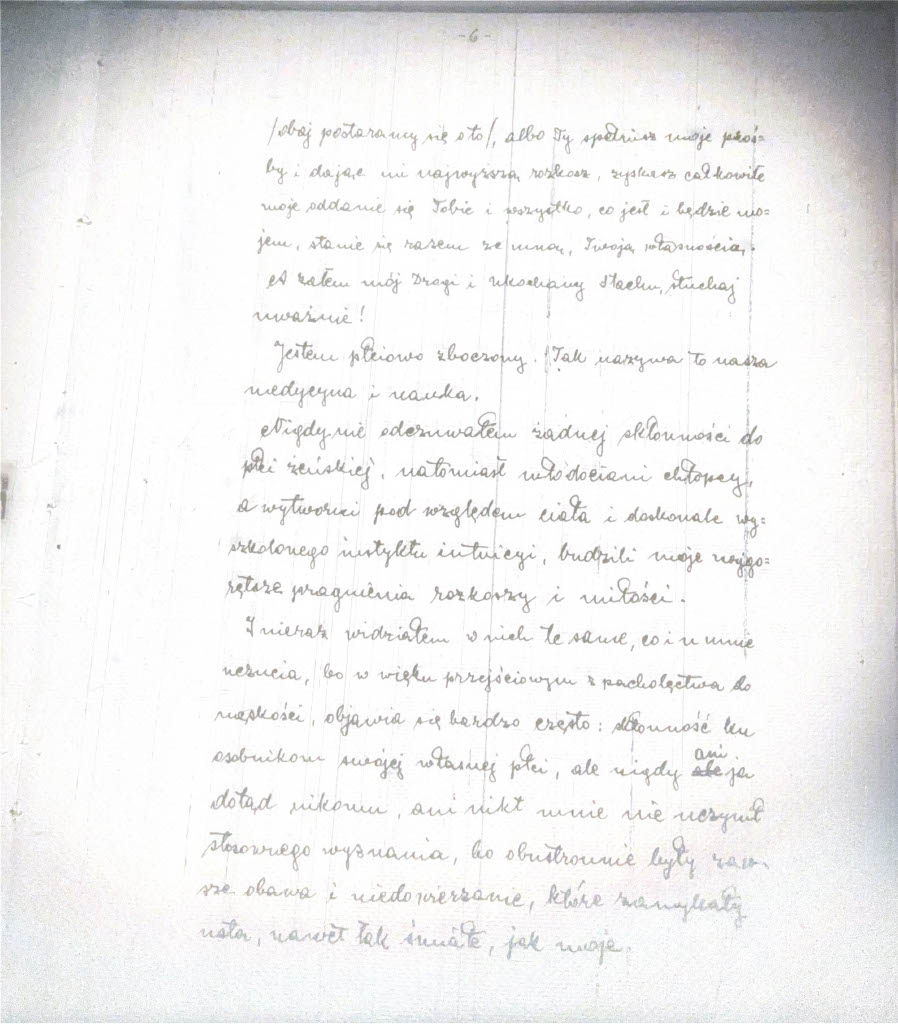 - 6 -
/obaj postaramy się o to/, albo Ty spełnisz moje proś=
by i dając mi najwyższą rozkosz, zyskasz całkowite
moje oddanie się Tobie i wszystko, co jest i będzie mo=
jem, stanie się razem ze mną, Twoją własnością.
A zatem mój Drogi i Ukochany Stachu, słuchaj
uważnie!
Jestem płciowo zboczony. /Tak nazywa to nasza
medycyna i nauka.
Nigdy nie odczuwałem żadnej skłonności do
płci żeńskiej, natomiast młodociani chłopcy,
a wytworni pod względem ciała i doskonale wy=
szkolonego instyktu intuicyi, budzili moje najgo=
rętsze pragnienia rozkoszy i miłości.
I nieraz widziałem w nich te same, co i u mnie
uczucia, bo w wieku przejściowym z pacholęctwa do
męskości, objawia się bardzo często: skłonność ku
osobnikom swojej własnej płci, ale nigdy ani ja
dotąd nikomu, ani nikt mnie nie uczynił
stosownego wyznania, bo obustronnie były zaw=
sze obawa i niedowierzanie, które zamykały
usta, nawet tak śmiałe, jak moje.